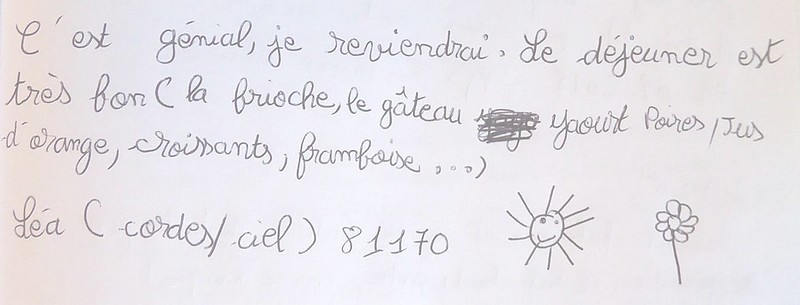 C'est génial, je reviendrai. Le déjeuner est
très bon ( la brioche, le gâteau Yaourt Poires/Jus
d'orange, croissants, framboise ,...)
Léa ( cordes/ciel ) 81170